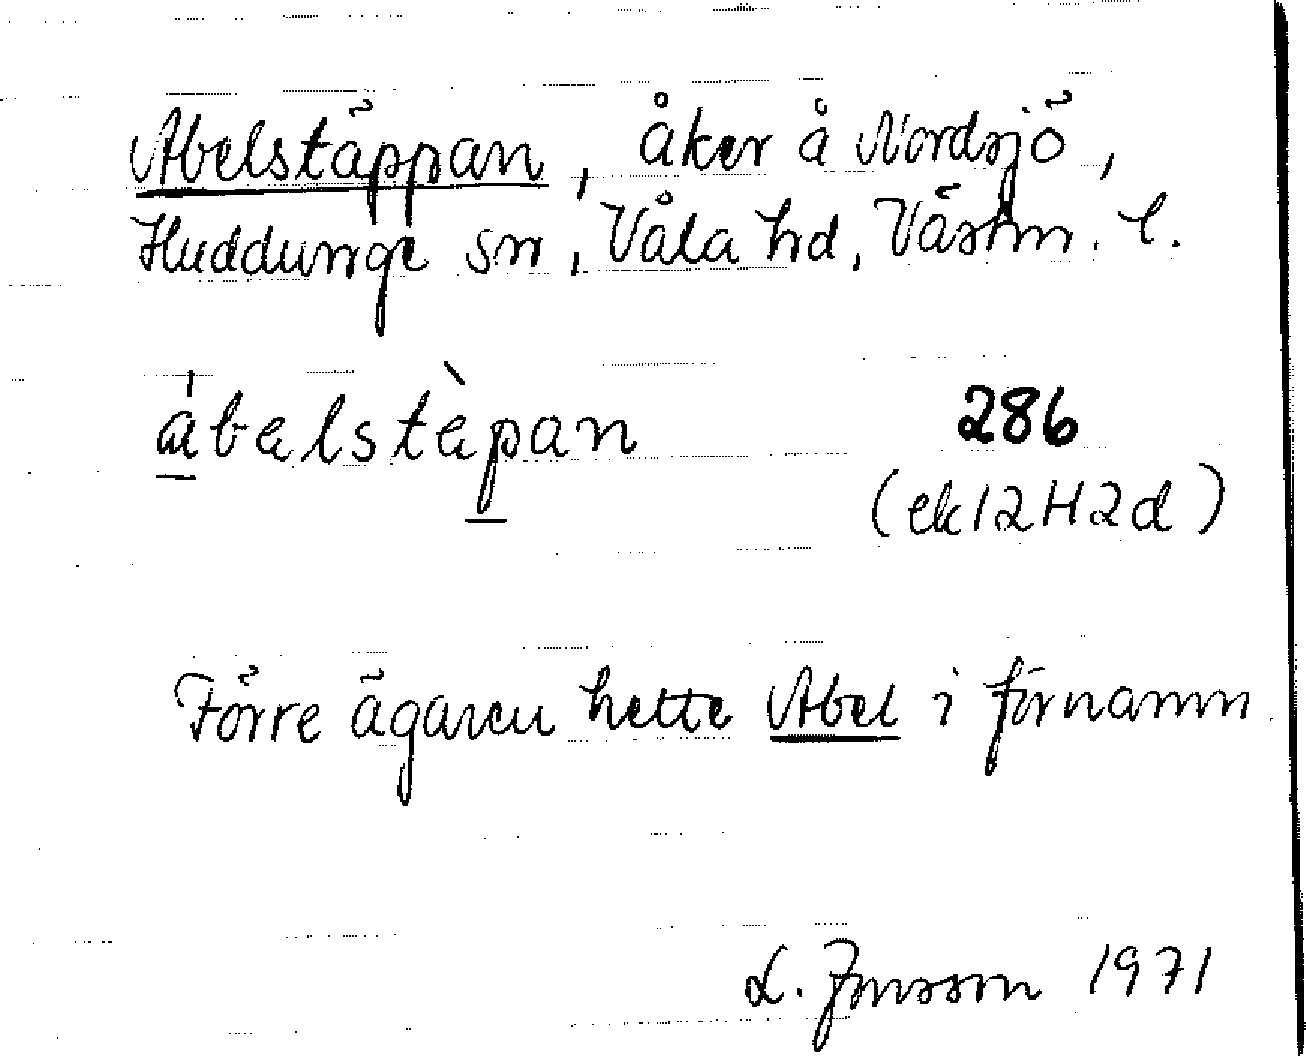 Abelstäppan, åker å Nordsjö,
Huddunge sn, Våla hd, Västm. l.
ábelstèpan
286
(ek 12H2d)
Förre ägaren hette Abel i förnamn.
L. Jonsson 1971